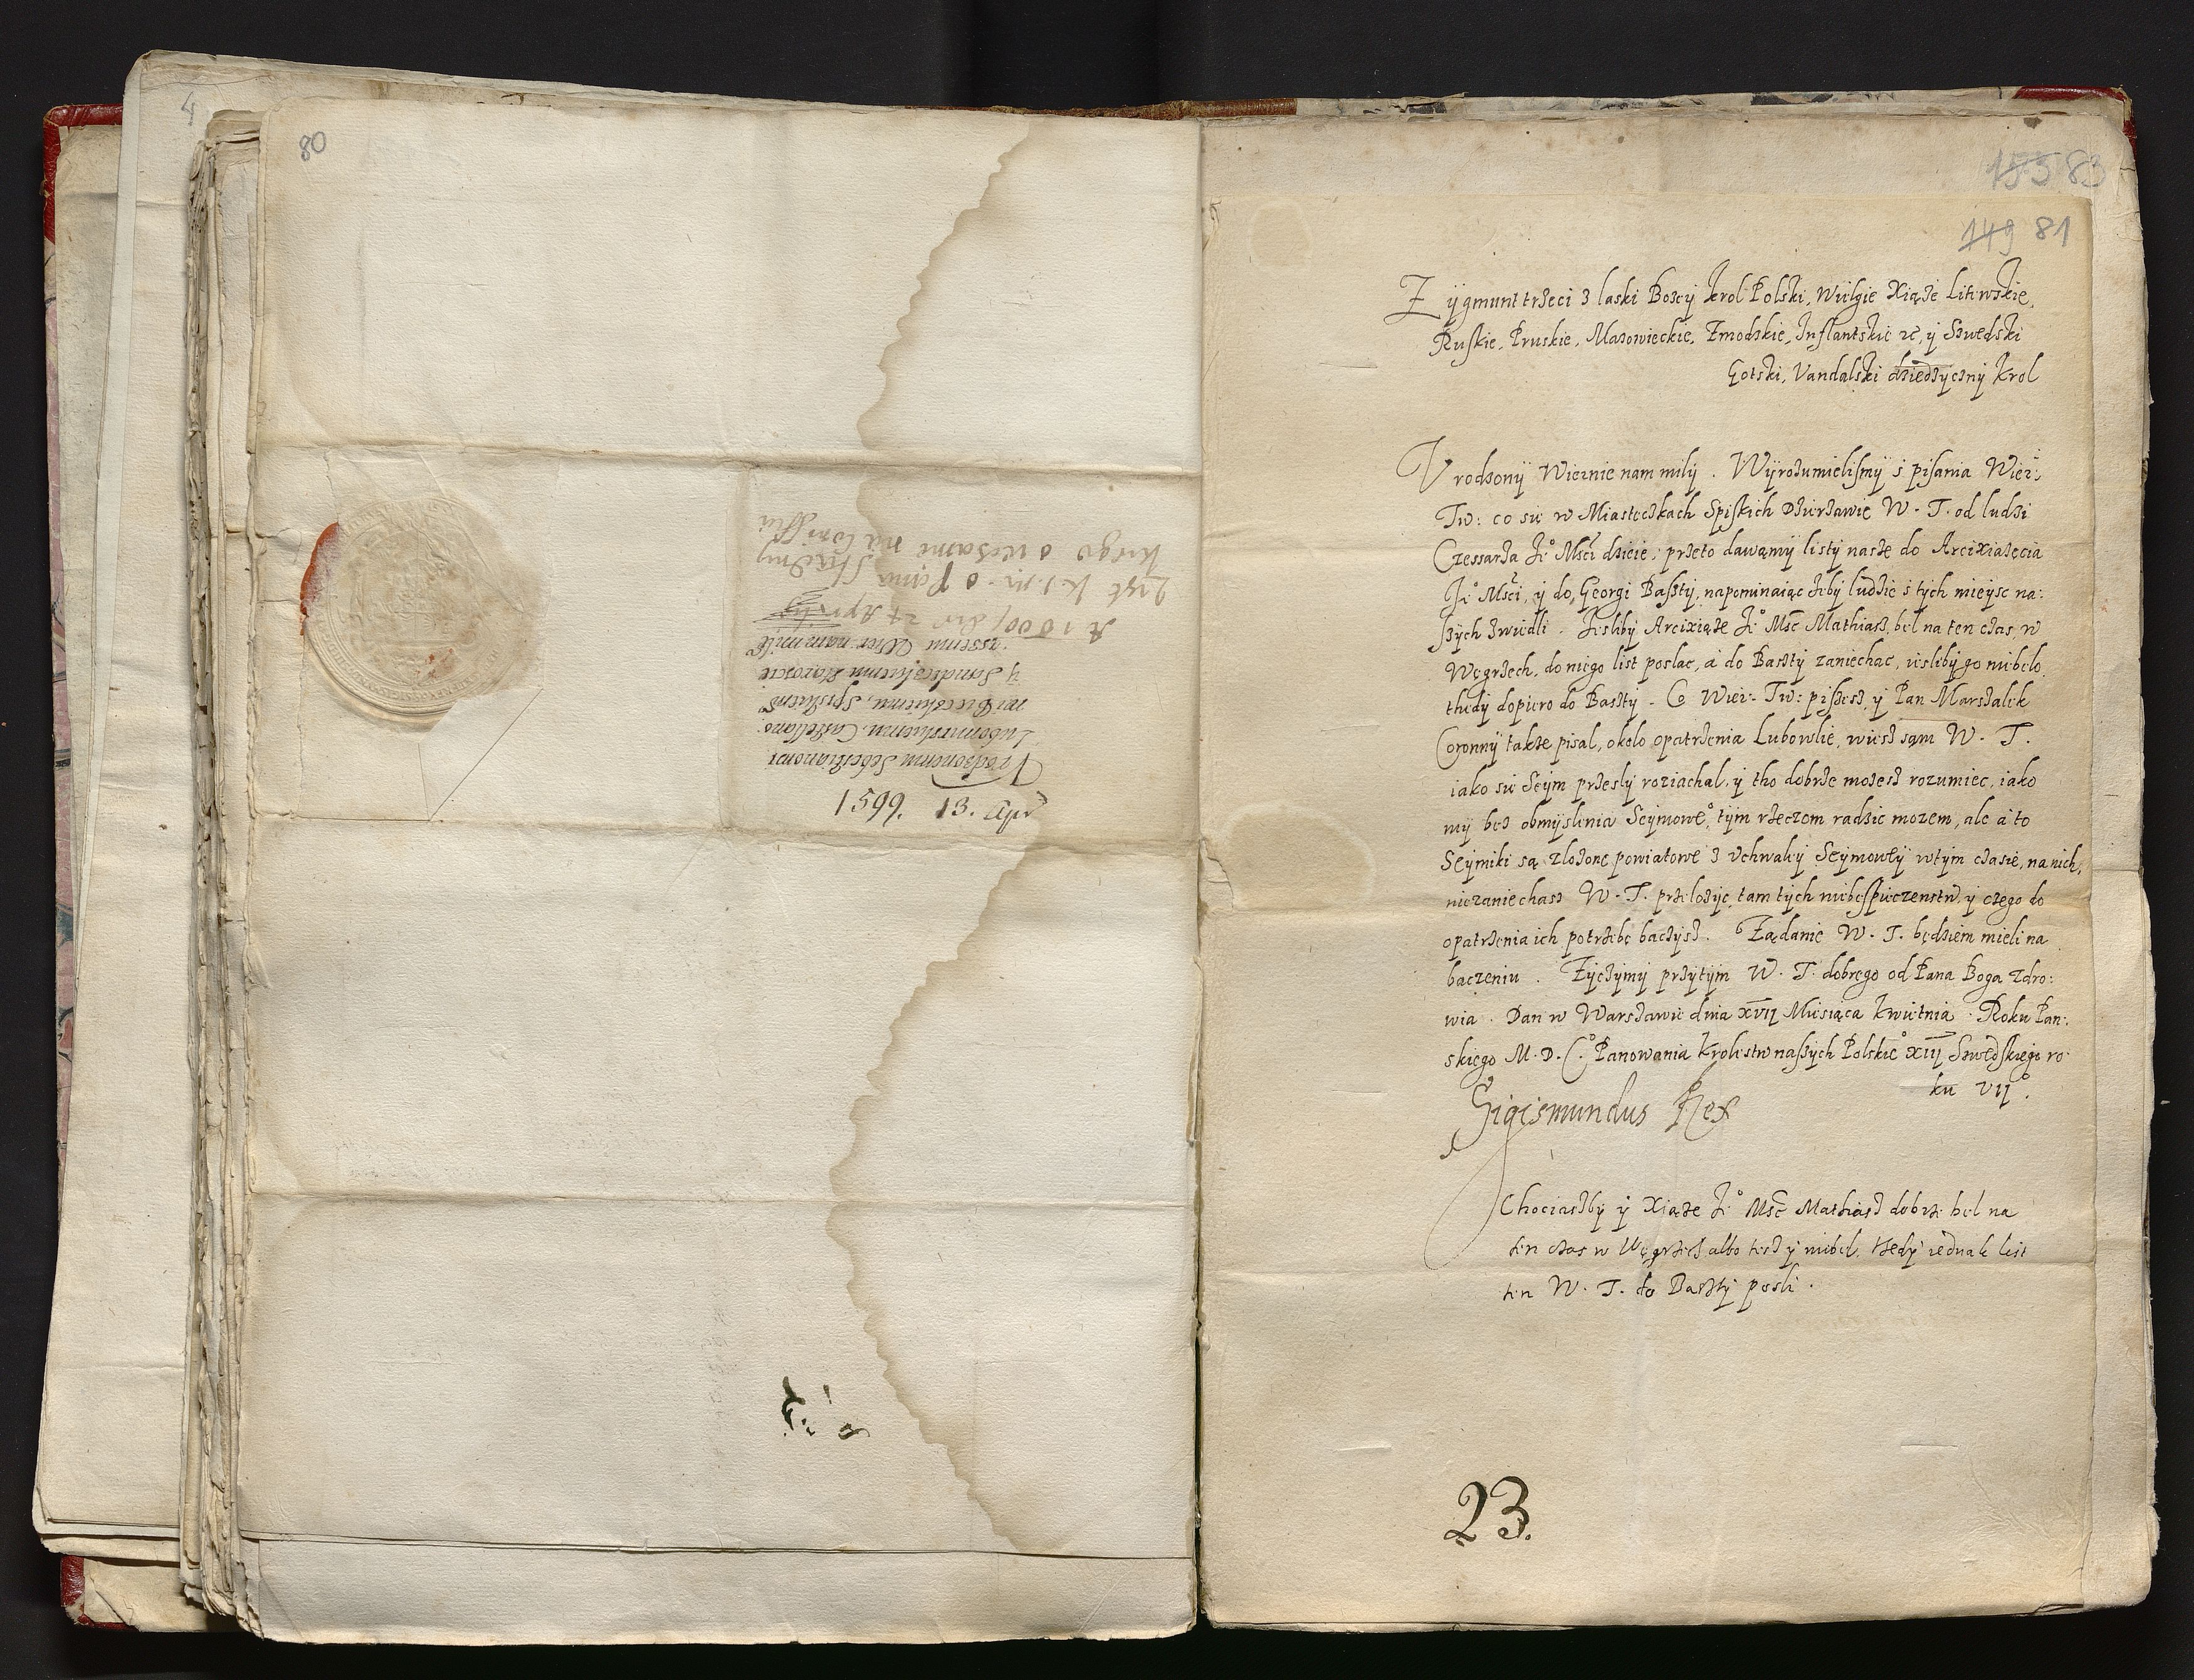 4
80
1599. 13. Apr
Vrodzonemu Sebestianowi
Lubomirskiemu, Castellano
wi Bieczkiemu, Spiskiemu
ÿ Sandeczkiemu Staroscie
Wier. nam miłe
A 1600 die 24 Aprilis
List K. J. M. o Pana
kiego o
153 83
149 81
Zÿgmunt trzeci z laski Bozeÿ Krol Polski, Wielgie Xiąze Litewskie,
Ruskie, Pruskie, Mazowieckie, Zmodzkie, Inflantskie zc, ÿ Szwedski
Gotski, Vandalski dziedzÿcznÿ Krol
Vrodzonÿ Wiernie nam milÿ. Wÿrozumielismÿ s pisania Wier:
Tw: co sie w Miasteczkach Spiskich Dzierzawie W. T. od ludzi
Czessarza Je° Mści dzieie, przeto dawamÿ listÿ nasze do Arcixiazęcia
Je° Mści, ÿ do Georgi Basstÿ, napominaiąc żebÿ ludzie s tÿch mieÿsc na:
szÿch zwiedli. Jesliby Arcixiąze Je° Mść Mathiasz bel na ten czas w
Węgrzech, do niego list poslac, a do Bastÿ zaniechac, iesliby go niebelo
thedÿ dopiero do Bastÿ. Co Wier. Tw: piszesz ÿ Pan Marszalek
Coronnÿ takze pisal, około opatrzenia Lubowlie, wiesz sąm W. T.
iako sie Seÿm przeszlÿ roziachal, ÿ tho dobrze mozesz rozumiec, iako
mÿ bez obmÿslenia Seÿmowe° tÿm rzeczom radzic mozem, ale a to
Seÿmiki są zlozone powiatowe z Vchwalÿ Seÿmoweÿ w tÿm czasie, na nich,
niezaniechasz W. T. przelozÿc tam tÿch niebespieczenstw ÿ czego do
opatrzenia ich potrzebę baczÿsz. Żądanie W. T. będziem mieli na
baczeniu. Zÿczÿmÿ przÿtÿm W. T. dobrego od Pana Boga zdro:
wia. Dan w Warszawie dnia XVII Miesiąca Kwietnia. Roku Pan:
skiego M. D. C.° Panowania Krolestw naszÿch Polskie° XIII Szwedskiego ro:
ku VII°.
Sigismundus Rex
Chociaszbÿ ÿ Xiąze Je° Mść Mathiasz dobrze bel na
ten czas w Węgrzech albo tesz ÿ niebel, thedÿ iednak list
ten W. T. do Bastÿ posli.
23.